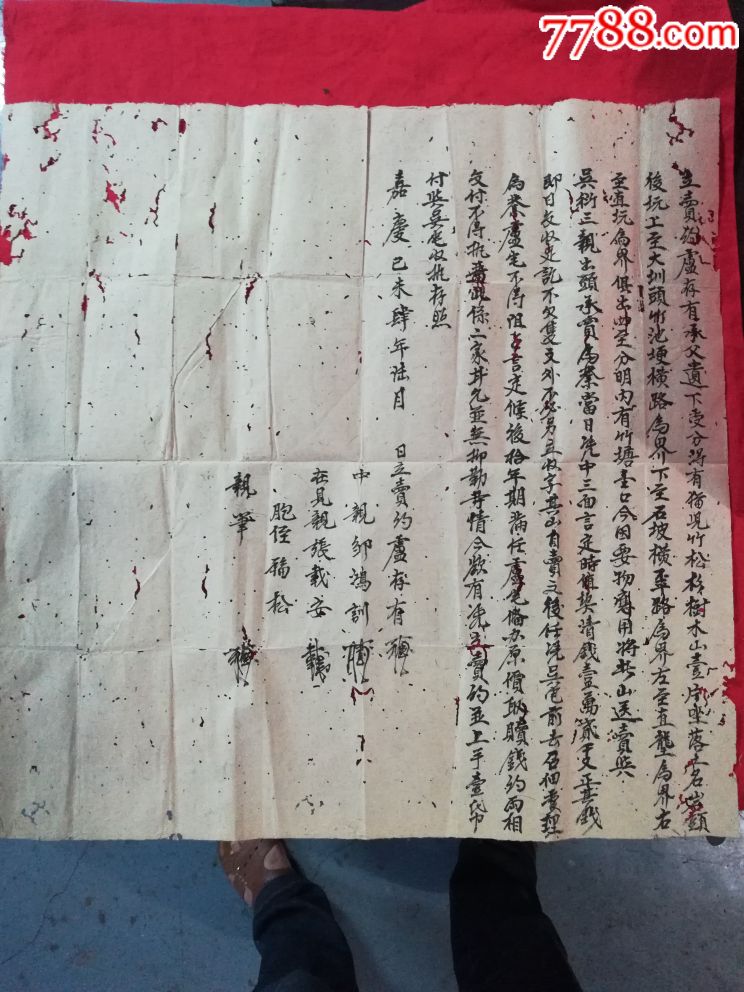 7788.com
立賣約盧存有承父遺下受分得有猫児竹松杉樹木山壹片坐落土名
後坑上至大圳頭竹池埂橫路為界下至石坡橫路為界左至直壟為界右
至直坑為界俱出四至分明內有竹塘壹口今因要物應用將此山送賣與
吳 三親出頭承買為業當日凭中三面言定時值契清錢壹萬 文正其錢
即日交收足訖不欠隻文外不必另立收字其山自賣之後任凭吳宅前去召佃管理
為業盧宅不得阻 言定候後拾年期滿任盧宅俻办原價取贖錢約兩相
交付不得執 此係二家甘允並無抑勒等情今欲有凭立賣約並上手壹帋
付與吳宅收執存照
嘉慶己未肆年陆月 日立賣約盧存有
中親鄒鴻訓
在見親張載安
胞侄福松
親筆